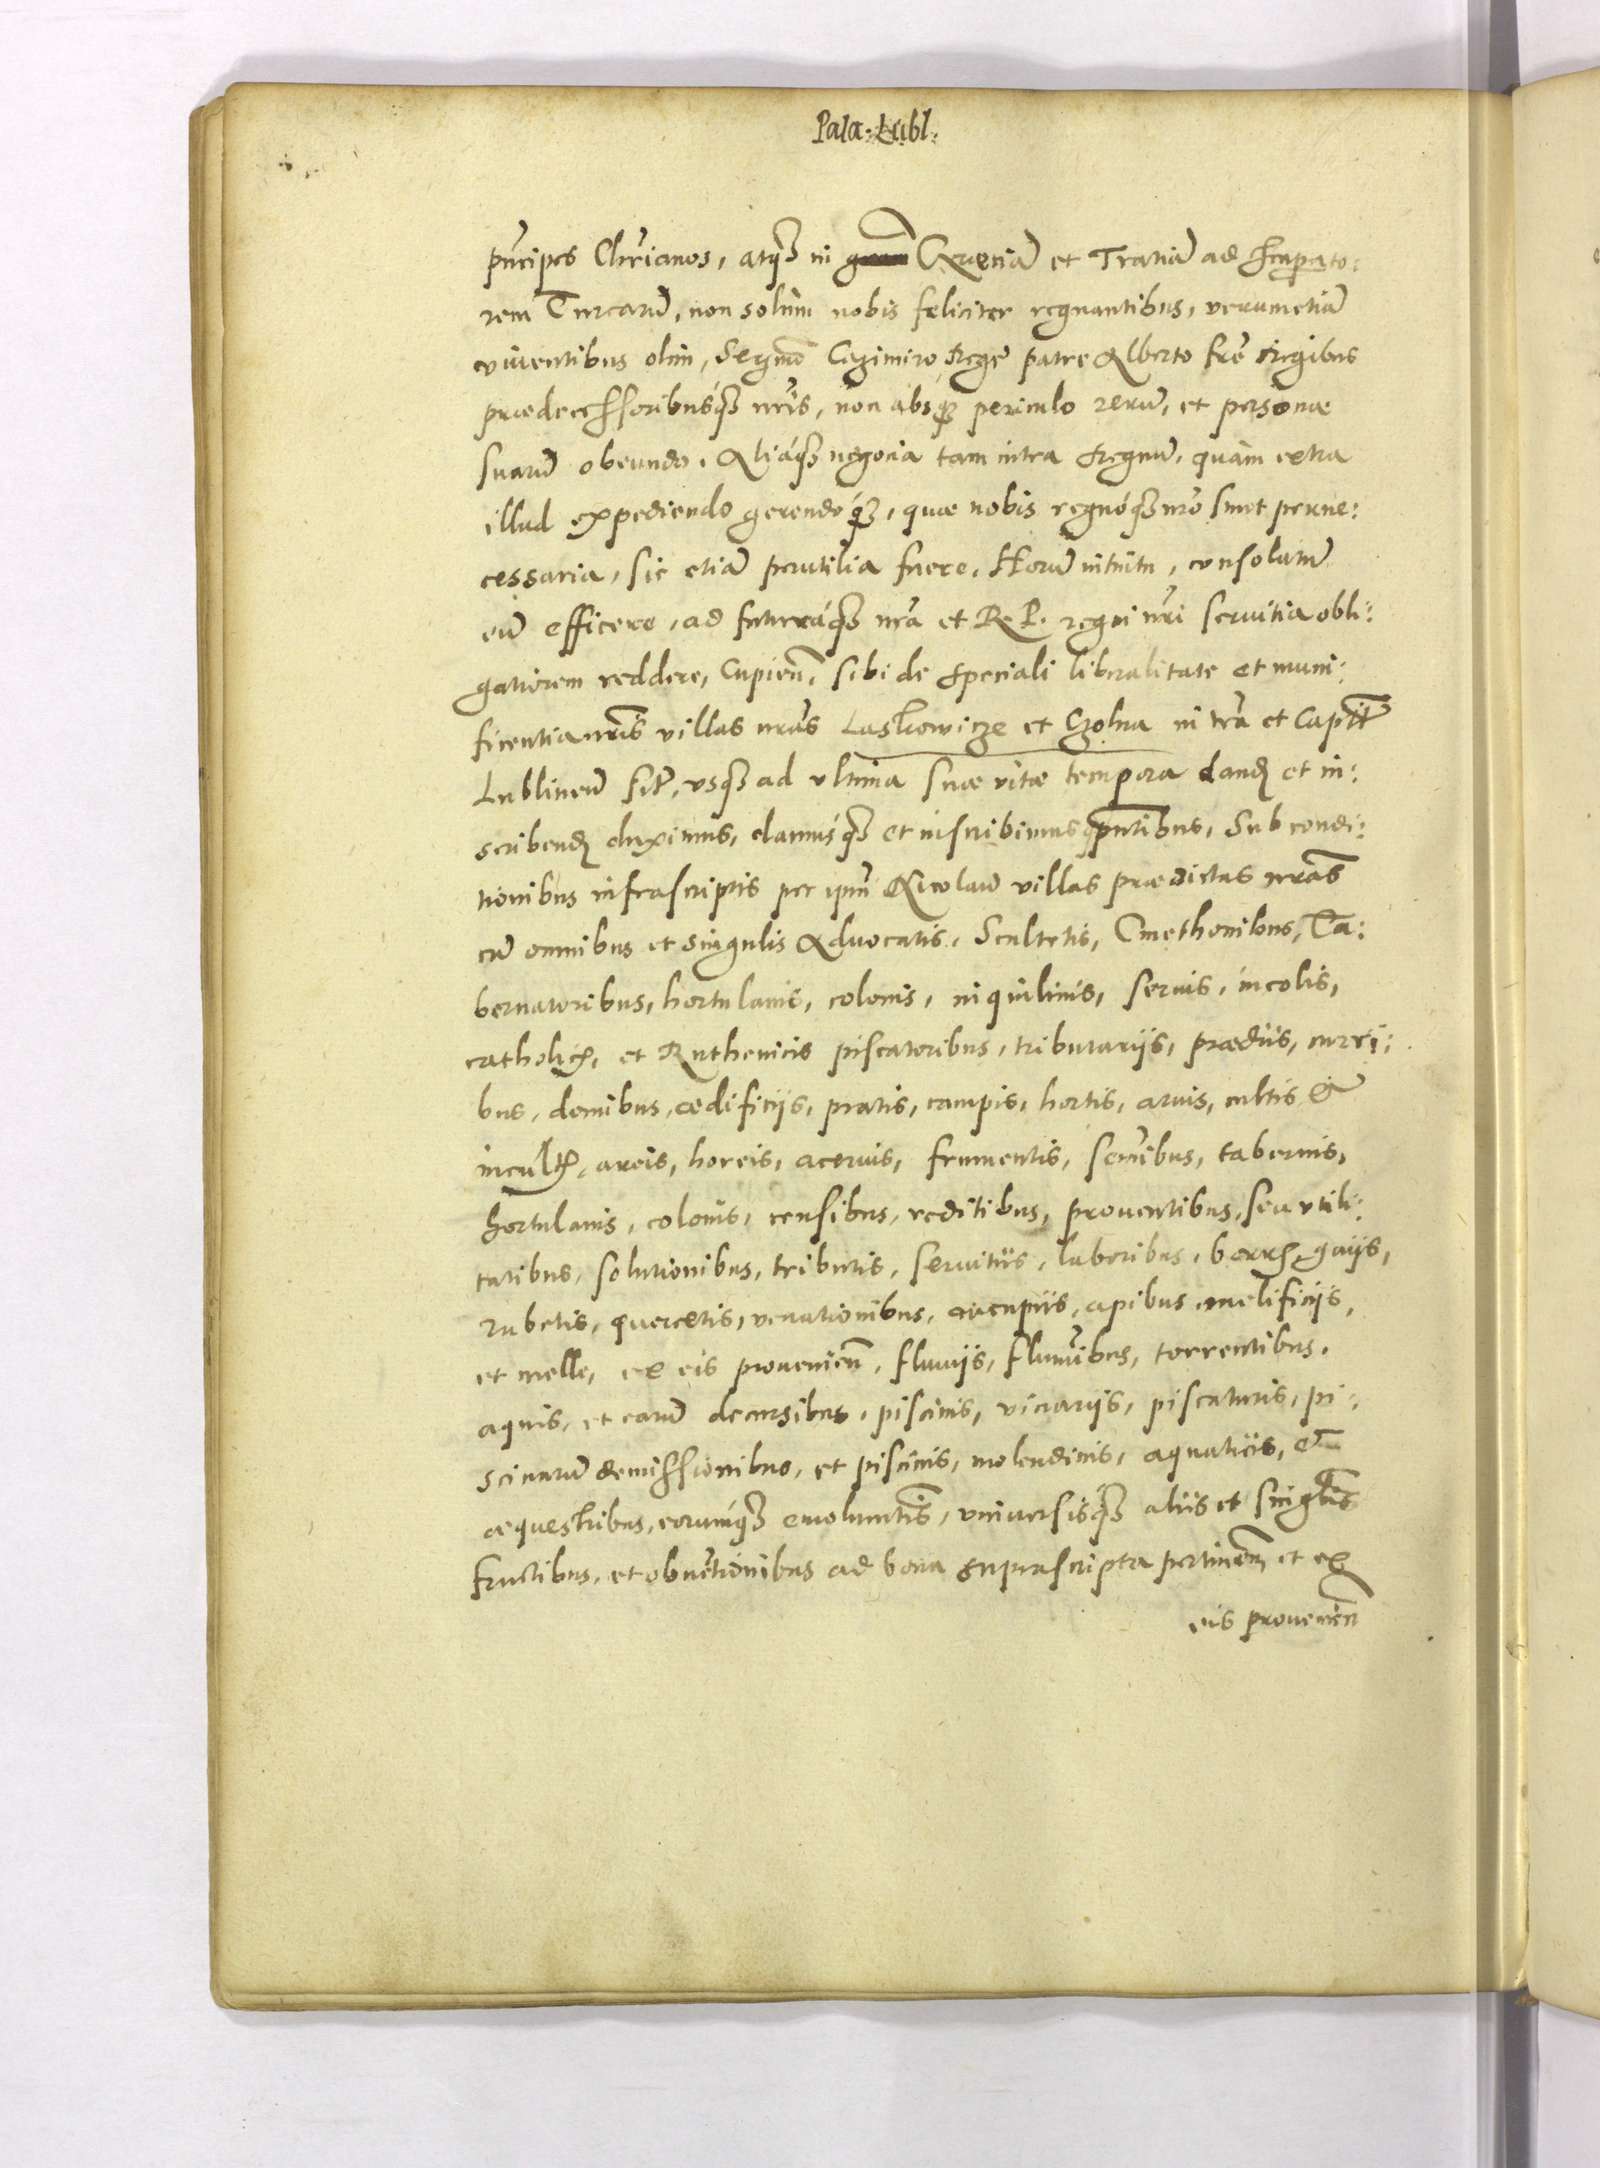 Pala. Lubl.
prĩcipes Chrĩanos, atq̃3 in Greciã et Traciã ad Imperato:
rem Turcarũ, non solum nobis feliciter regnantibus, verumetiã
viuentibus olim, Sermõ Cazimiro Rege patre Alberto frẽ Regibus
prædecessoribusq́3 nrĩs, non absq3 periculo rerũ, et personæ
suarũ obeundo, Aliáq3 negocia tam intra Regnũ, quàm extra
illud expediendo gerendoq́3, quæ nobis regnóq3 nrõ sunt perne:
cessaria, sic etiã perutilia fuere. Horũ intuitu, consolatũ
eũ efficere, ad futuráq3 nrã et R. P. regni nrĩ seruitia obli:
gatiorem reddere, Cupieñ, sibi de speciali liberalitate et muni:
ficentia nrĩs villas nrãs Laskowicze et Czolna in trã et Captt̃
Lublineñ sit̃, vsq3 ad vltima suæ vitæ tempora dand et in:
scribend duximus, damusq́3 et inscribimus pñtibus, Sub condi:
tionibus infrascriptis per ipm̃ Nicolaũ villas prædictas nrãs
cũ omnibus et singulis Aduocatis, Scultetis, Cmethonibus, Ta:
bernatoribus, hortulanis, colonis, inquilinis, seruis, incolis,
catholicis, et Ruthenicis piscatoribus, tributarijs, prædiis, curri:
bus, domibus, ædificijs, pratis, campis, hortis, aruis, cultis &
incultis, areis, horeis, aceruis, frumentis, semĩbus, tabernis,
hortulanis, colonis, censibus, reditibus, prouentibus, seu vtili:
tatibus, solutionibus, tributis, seruitiis, laboribus, borris, gaijs,
rubetis, quercetis, venationibus, aucupiis, apibus, melificijs,
et melle, ex eis prouenieñ, fluuijs, flumĩbus, torrentibus,
aquis, et earũ decursibus, piscinis, viuarijs, piscaturis, pi:
scinarũ demissionibus, et piscinis, molendinis, aquaticis, &
æquestribus, eorumq́3 emolumtĩs, vniuersisq́3 aliis et singlĩs
fructibus, et obuẽtionibus ad bona suprascripta pertineñ et ex
eis prouenieñ